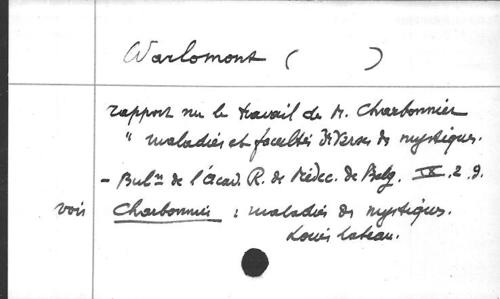 Warlomont ( )
rapport sur le travail de M. Charbonnier
" maladies et facultés diverses des mystiques.
- Bulⁿ de l'Acad. R. de Médec. de Belg. IX. 2. d.
voir Charbonnier : maladies des mystiques.
Louis Lateau.